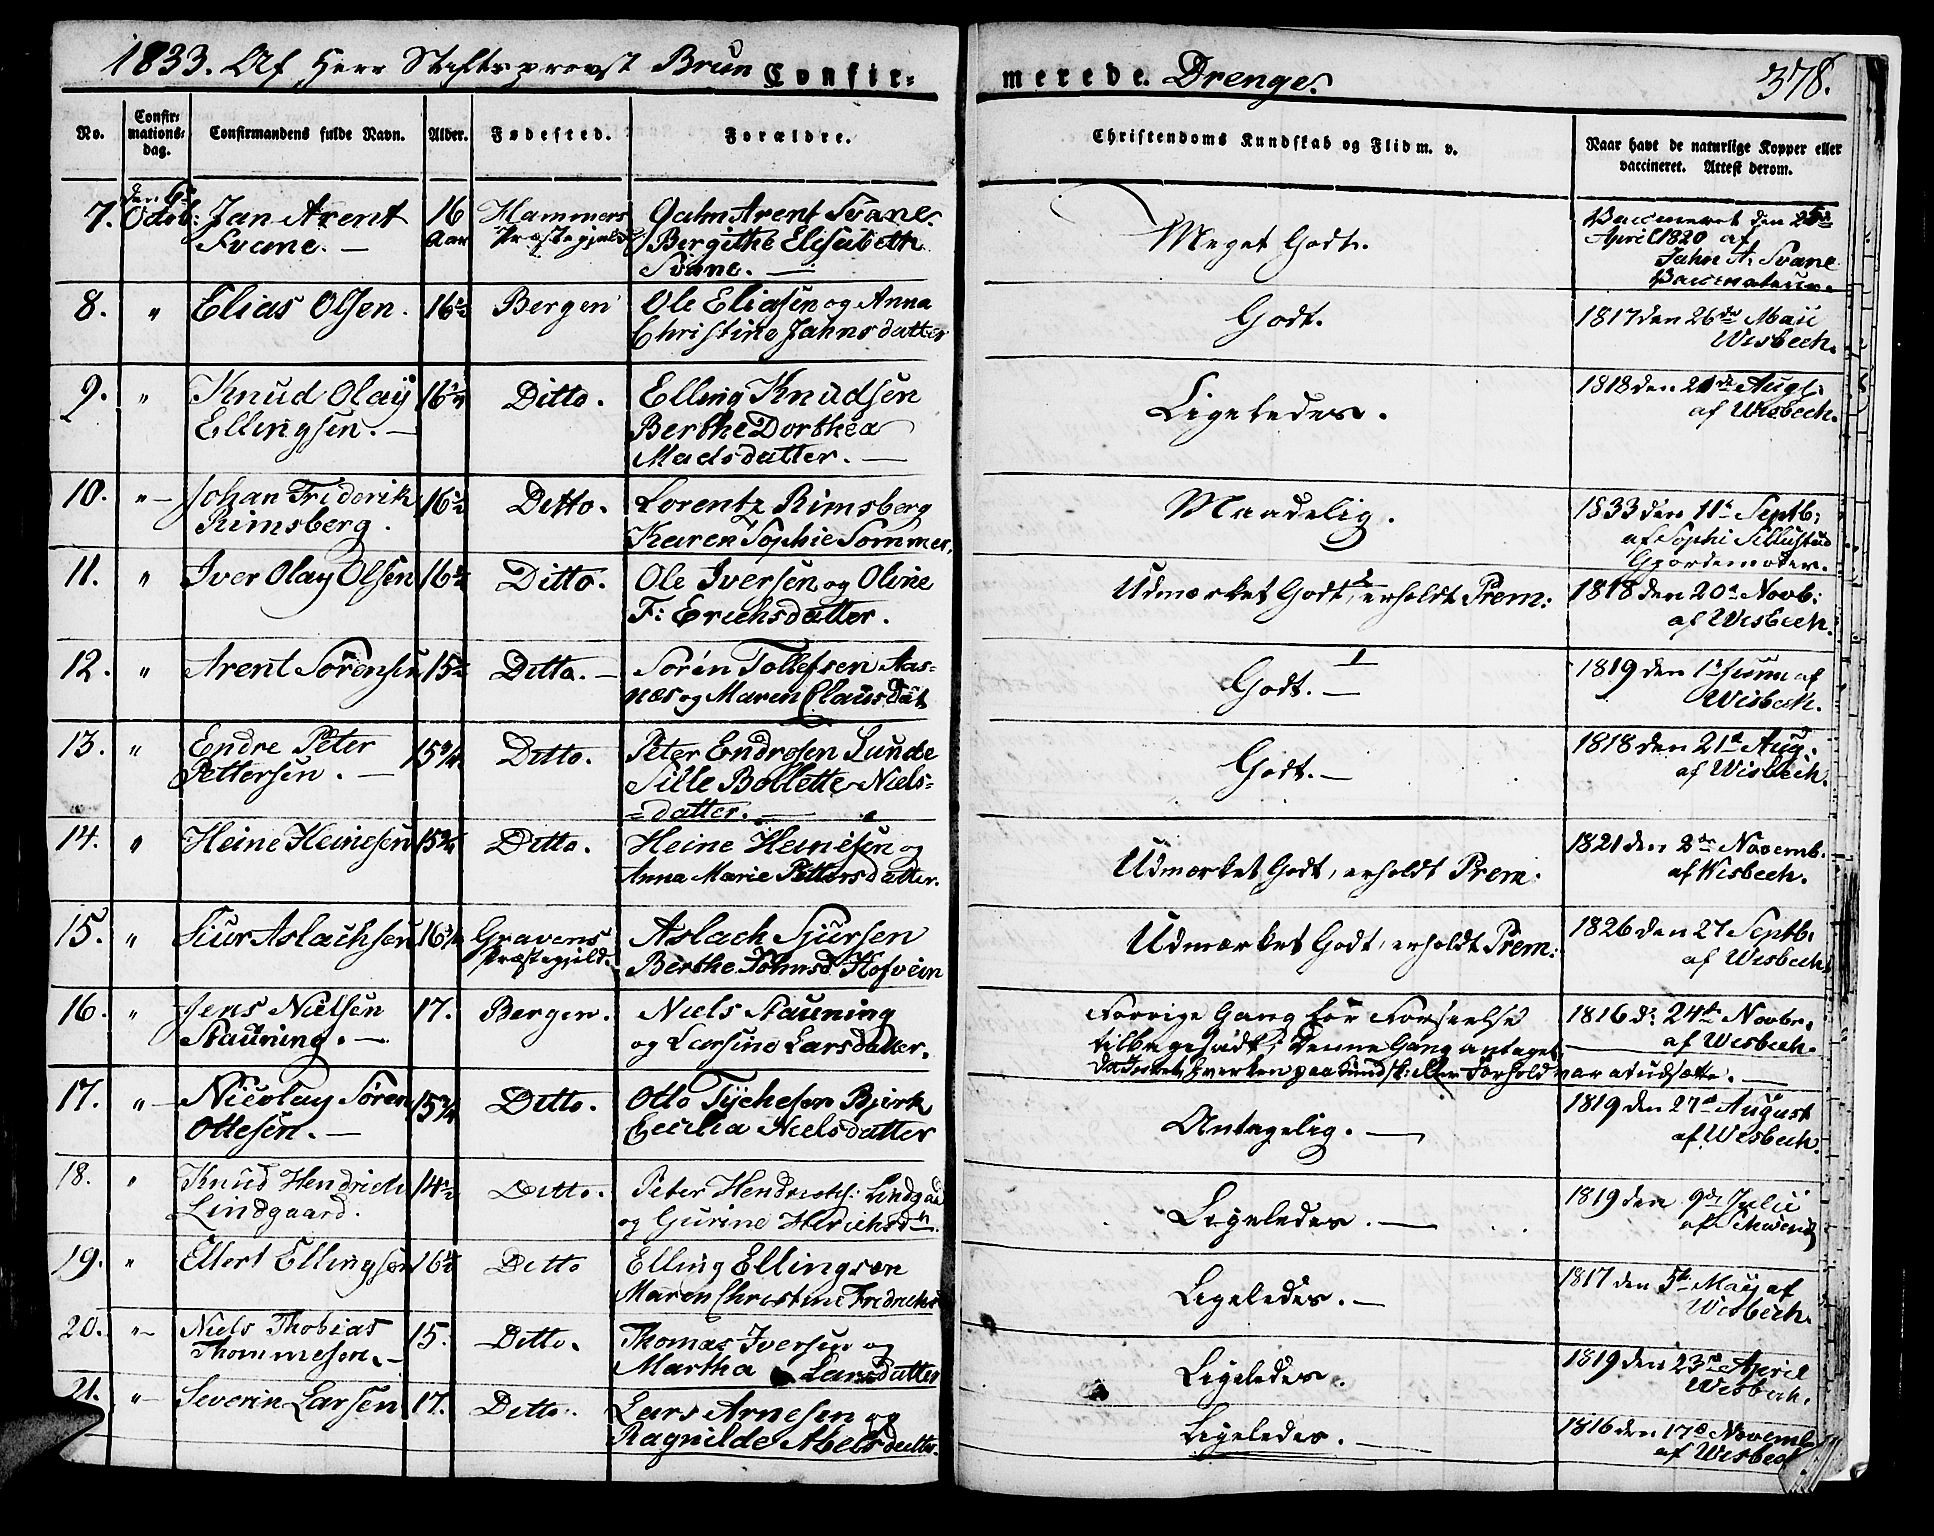 1833. Af Herr Stiftsprovst Brun Confir-
merede. Drenge.
378.
No.
Confir-
mations-
dag.
Confirmandens fulde Navn.
Alder.
Fødested.
Forældre.
Christendoms Kundskab og Flid m. v.
Naar havt de naturlige Kopper eller
vaccineret. Attest derom.
7. Octob: Jan Arent 16 Hammers Jahn Arent Svane
Svane. — Aar Præstegjeld Bergithe Elisabeth
Svane. —
Meget Godt.
Vaccineret den 25de
April 1820 af
Jahn A. Svane
Vaccinateur.
8. " Elias Olsen. 16½ Bergen Ole Eliasen og Anna
Christine Jahnsdatter
Godt.
1817 den 26de Maii
Wisbech.
9. " Knud Olaÿ 16¼ Ditto. Elling Knudsen
Ellingsen. — Berthe Dorthea
Madsdatter. —
Ligeledes.
1818 den 21de Augs:
af Wisbech.
10. " Johan Friderik 16½ Ditto. Lorentz Rimsberg
Rimsberg. Karen Sophie Sommer,
Maadelig.
1833 den 11te Septb;
af Sophi
Gjordemoder.
11. " Iver Olay Olsen 16½ Ditto. Ole Iversen og Oline
F: Erichsdatter.
Udmærket Godt, erholdt Prem:
1818 den 20de Novb:
af Wisbech.
12. " Arent Sörensen 15½ Ditto. — Sorén Tollefsen Aas-
næs og Maren Clausdat
Godt. —
1819 den 1ste Junii af
Wisbech.
13. " Endre Peter 15¾ Ditto. Peter Endresen Lunde
Pettersen. — Sille Bollette Niels-
=datter. —
Godt. —
1818 den 21de Aug:
af Wisbech.
14. " Heine Heinesen 15¾ Ditto. Heine Heinesen og
Anna Marie Pettersdatter.
Udmærket Godt, erholdt Prem:
1821 den 2den Novemb.
af Wisbech.
15. " Siur Aslachsen 16¼ Gravens Aslach Sjursen
Præstegjeld. Berthe Hofvein
Udmærket Godt, erholdt Prem:
1826 den 27 Septb.
af Wisbech.
16. " Jens Nielsen 17. Bergen. Niels Stauning
Stauning. — og Larsine Larsdatter.
Forrige Gang for Forseelse
tilbagesadt; denne Gang antaget
da Intet hverken paa Kundsk: eller Forhold var at udsætte. —
1816 d: 24de Novbr.
af Wisbech.
17. " Nicolay Sören 15¾ Ditto. Otto Tÿchesen Bjerk
Ottesen. — Cecilia Nielsdatter
Antagelig. —
1819 den 27de August
af Wisbech.
18. " Knud Hendrich 14½ Ditto. Peter Hendrichs: Lindga
Lindgaard. og Gurine Hlrichsdr.
Ligeledes. —
1819 den 9de Julii
af
19. " Ellert Ellingsen 16½ Ditto Elling Ellingsen
Maren Christine Fredrichs
Ligeledes. —
1817 den 5te Maÿ af
Wisbech.
20. " Niels Thobias 15. Ditto. Thomas Iversen og
Thommesen. — Martha Larsdatter
Ligeledes.
1819 den 23de April
Wisbech.
21. " Severin Larsen 17. Ditto. Lars Arnesen og
Ragnilde Abelsdatter.
Ligeledes. —
1816 den 17de Novemb
af Wisbech